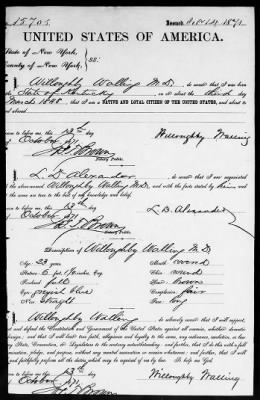 15705. Issued Oct 14 1871
UNITED STATES OF AMERICA.
State of New York,
County of New York, } SS:
I, Willoughby Walling M.D., do swear that I was born
in the State of Kentucky, on or about the third day
of March 1848, that I am a NATIVE AND LOYAL CITIZEN OF THE UNITED STATES, and about to
Sworn to before me, this 13th day
of October 1871 Willoughby Walling
Notary Public.
I, L. D. Alexander, do swear that I am acquainted
with the above-named Willoughby Walling M.D., and with the facts stated by him
Sworn to before me, this 13th day
of October 1871 L. D. Alexander
Notary Public.
Description of Willoughby Walling M.D.
Age: 23 years Mouth: round
Stature: Chin: round
Forehead: full Hair: Brown
Eyes: greyish blue Complexion: fair
Nose: straight Face:
I, Willoughby Walling M.D., do solemnly swear that I will support,
protect and defend the Constitution and Government of the United States against all enemies, whether domestic
or foreign; and that I will bear true faith, allegiance and loyalty to the same, any ordinance, resolution, or law
of any State, Convention, or Legislature to the contrary notwithstanding; and further, that I do this with a full
determination, pledge, and purpose, without any mental reservation or evasion whatsoever; and further, that I will
well and faithfully perform all the duties which may be required of me by law. So help me God.
Sworn to before me, this 13th day
of October 1871 Willoughby Walling